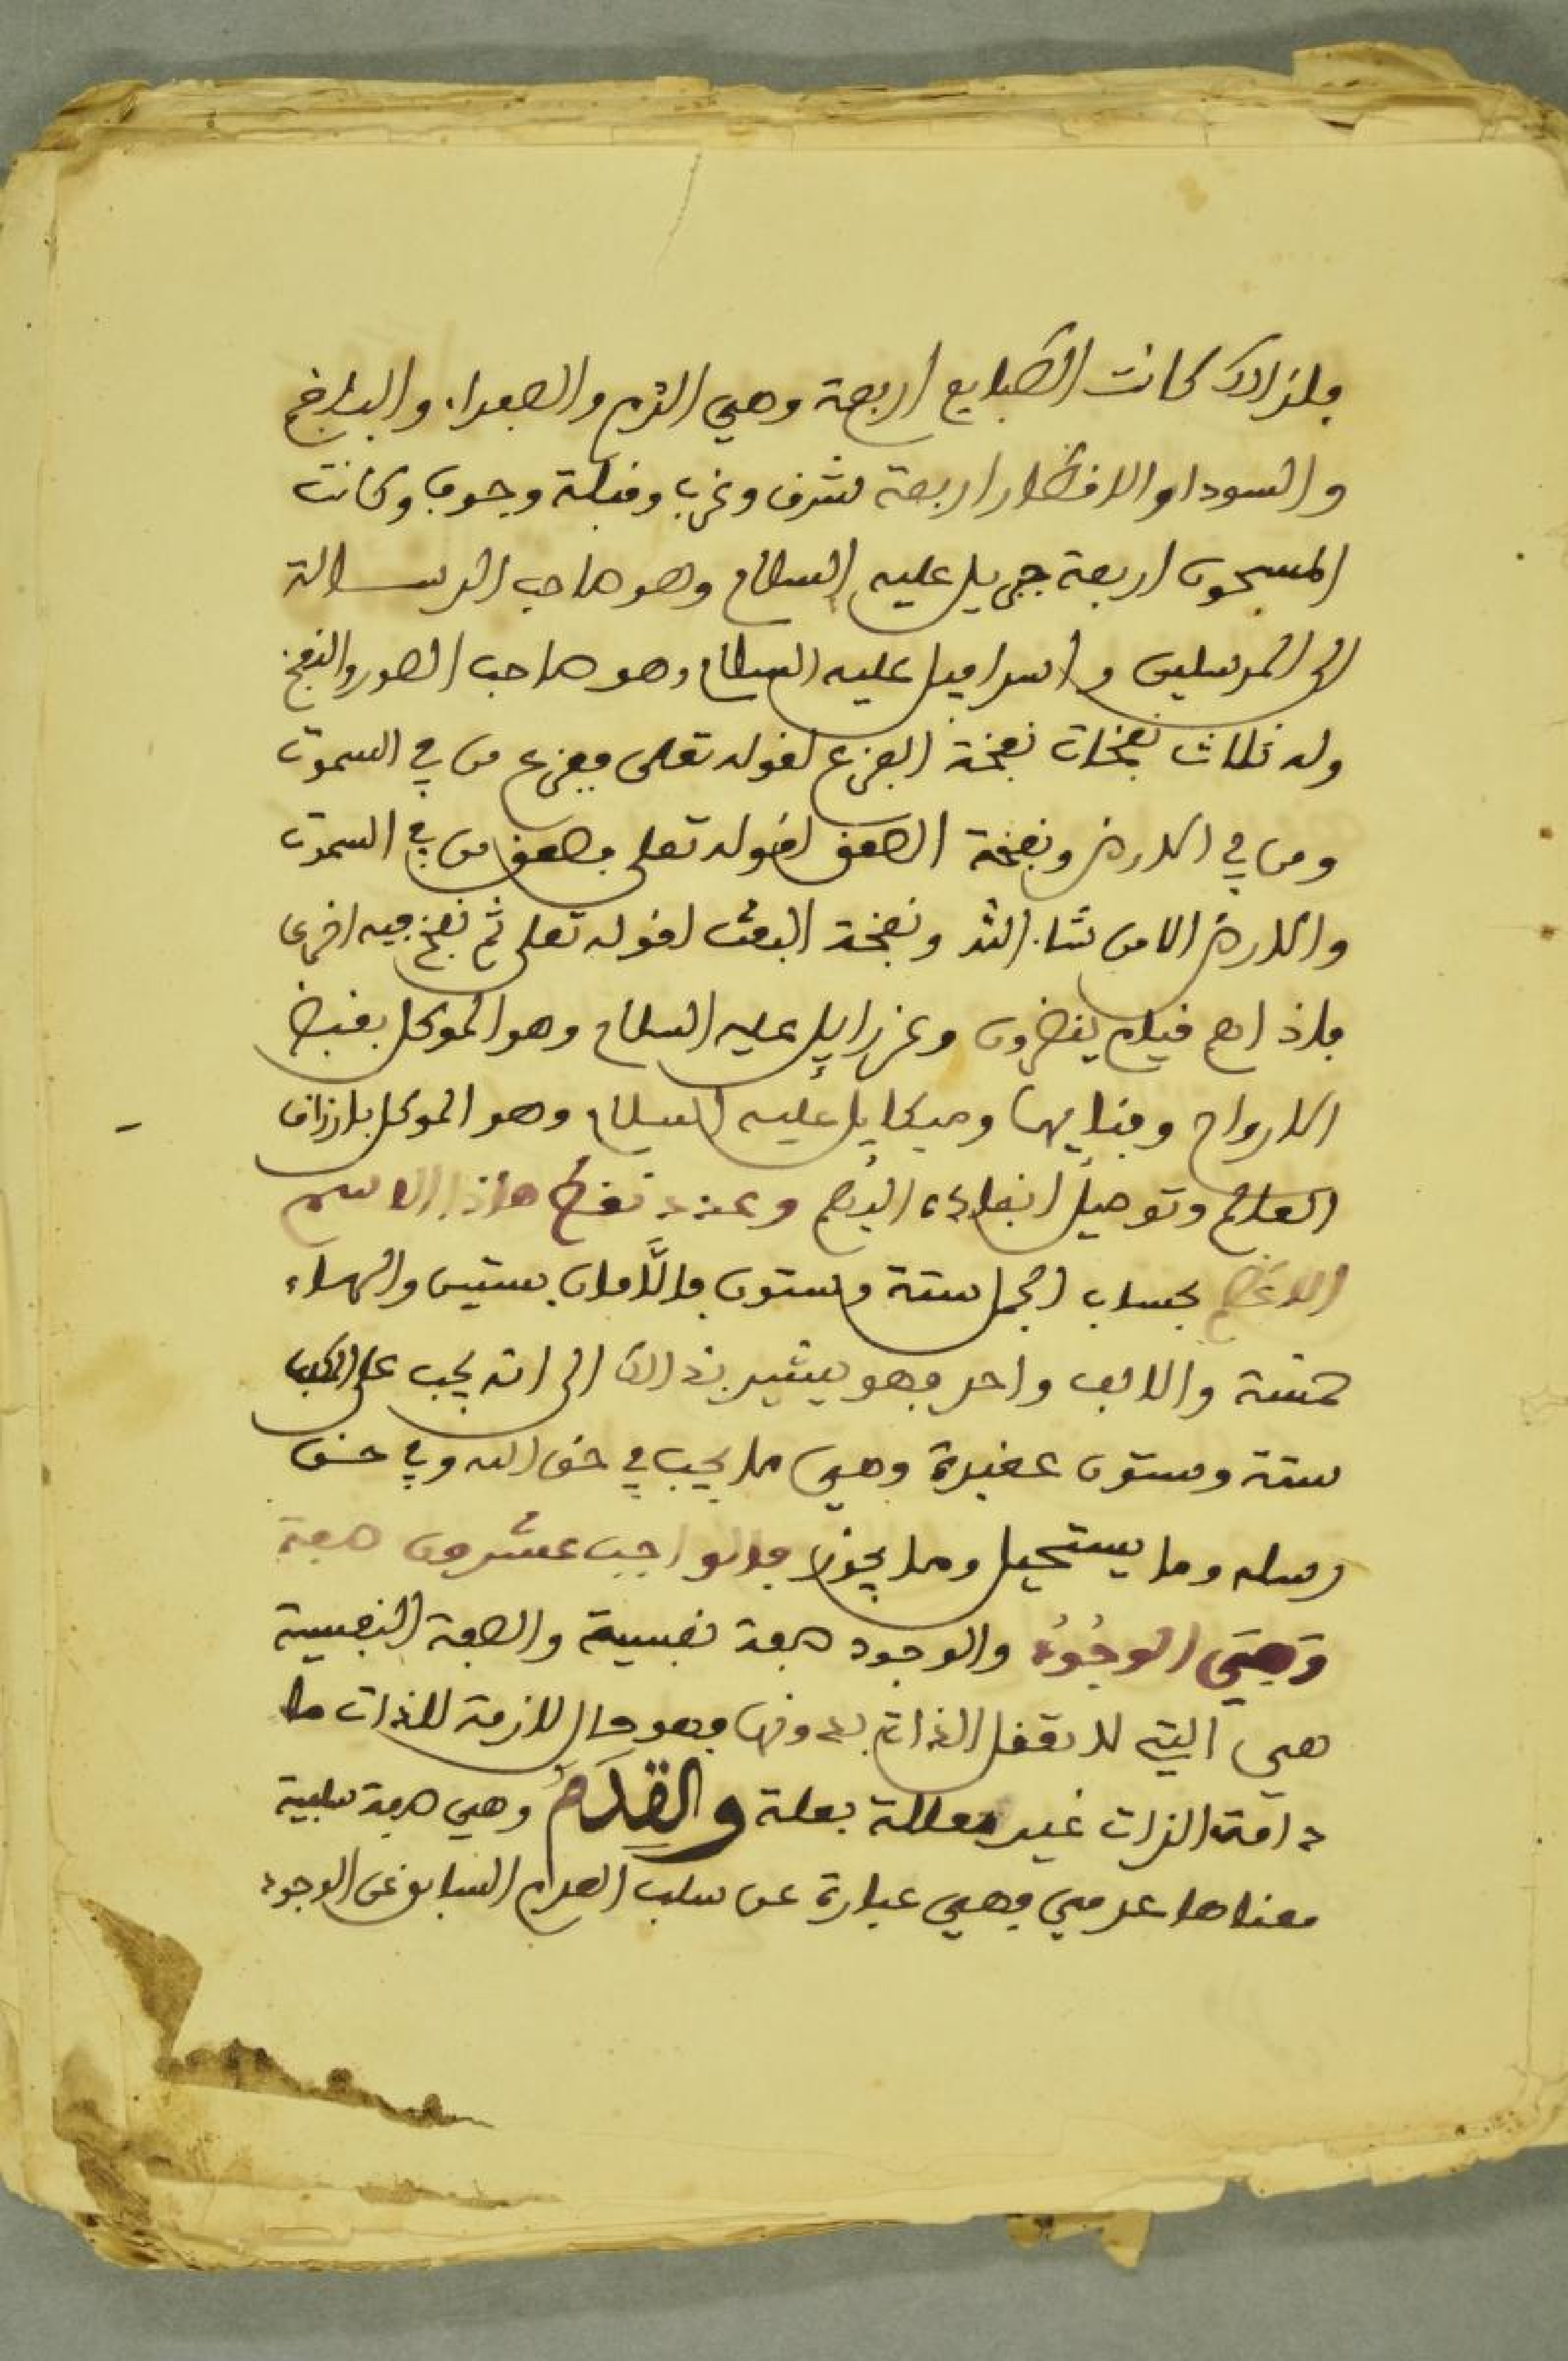 فلذالك كانت الطبايع اربعة وهي الدم والصفراء والبلغم
والسودا والاقطار اربعة شرق وغرب وقبلة وجوف وكانت
المسبحون اربعة جبريل عليه السلام وهو صاحب الرسالة
الى المرسلين واسرافيل عليه السلام وهو صاحب الصور والنفخ
وله ثلاث نفخات نفخة الفزع لقوله تعلى ففزع من في السموت
ومن في الارض ونفخة الصعق لقوله تعلى فصعق من في السموت
والارض الا من شاء الله ونفخة البعث لقوله تعلى ثم نفخ فيه اخرى
فاذا هم قيام ينظرون وعزرايل عليه السلام وهو الموكل بقبض
الارواح وفنايها وميكايل عليه السلام وهو الموكل بارزاق
العالم وتوصيل وعدد نقط هاذا الاسم
الاعظم بحساب الجمل ستة وستون فاللامان بستين والهاء
خمسة والالف واحد فهو يشير بذالك الى انه يجب على المكلف
ستة وستون عقيدة وهي ما يجب في حق الله وفي حق
رسله وما يستحيل وما يجوز فالواجب عشرون صفة
وَهِيَ الوجُودُ والوجود صفة نفسية والصفة النفسية
هي التي لا تعقل الذات بدونها وهو حال لازمة للذات ما
دامت الذات غير معللة بعلة والقِدَمُ وهي صفة سلبية
معناها عدمي وهي عبارة عن سلب العدم السابق عن الوجود